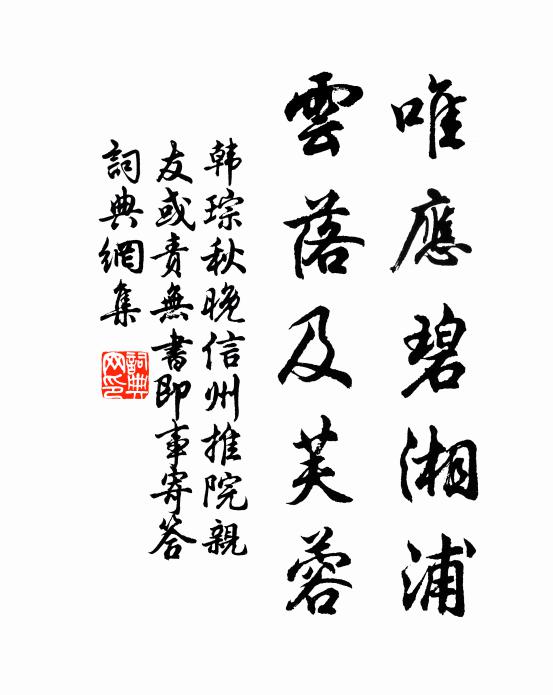 唯應碧湘浦
雲落及芙蓉
韩琮秋晚信州推院親
友或責無書即事寄答
詞典網集
詞典
网印